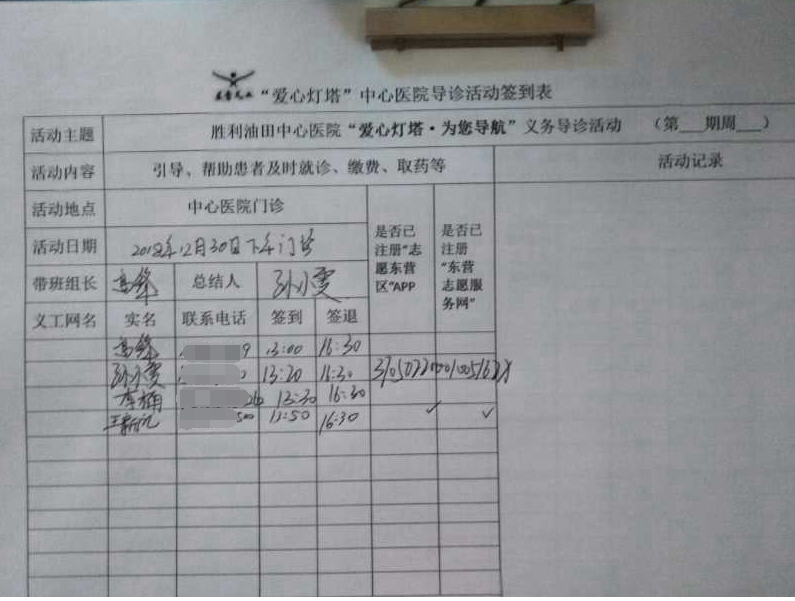 “爱心灯塔”中心医院导诊活动签到表
活动主题 胜利油田中心医院“爱心灯塔·为您导航”义务导诊活动 （第___期周___）
活动内容 引导、帮助患者及时就诊、缴费、取药等 活动记录
活动地点 中心医院门诊 是否已注册“志愿东营区”APP 是否已注册“东营志愿服务网”
活动日期 2018年12月30日下午门诊
带班组长 高峰 总结人 孙小雯
义工网名 实名 联系电话 签到 签退
高峰 9 13:00 16:30
孙小雯 13:20 16:30
李楠 26 13:30 16:30
500 13:50 16:30